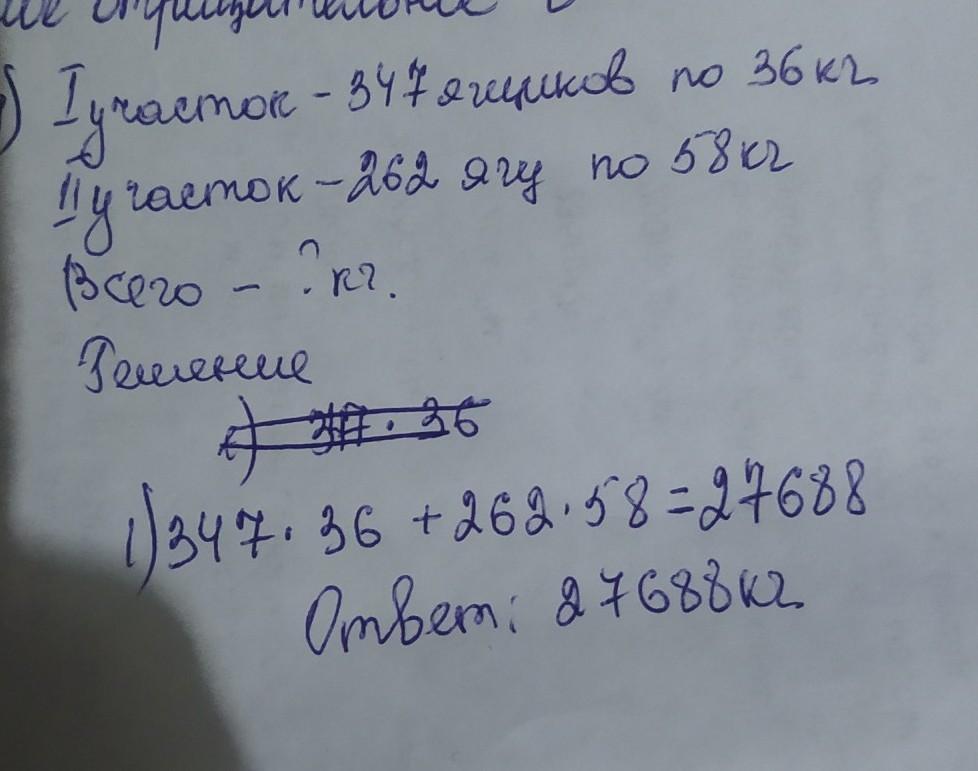 отрицательное
I участок - 347 ящиков по 36 кг
II участок - 262 ящ по 58 кг
Всего - ? кг.
Решение
1) 347 · 36 + 262 · 58 = 27688
Ответ: 27688 кг